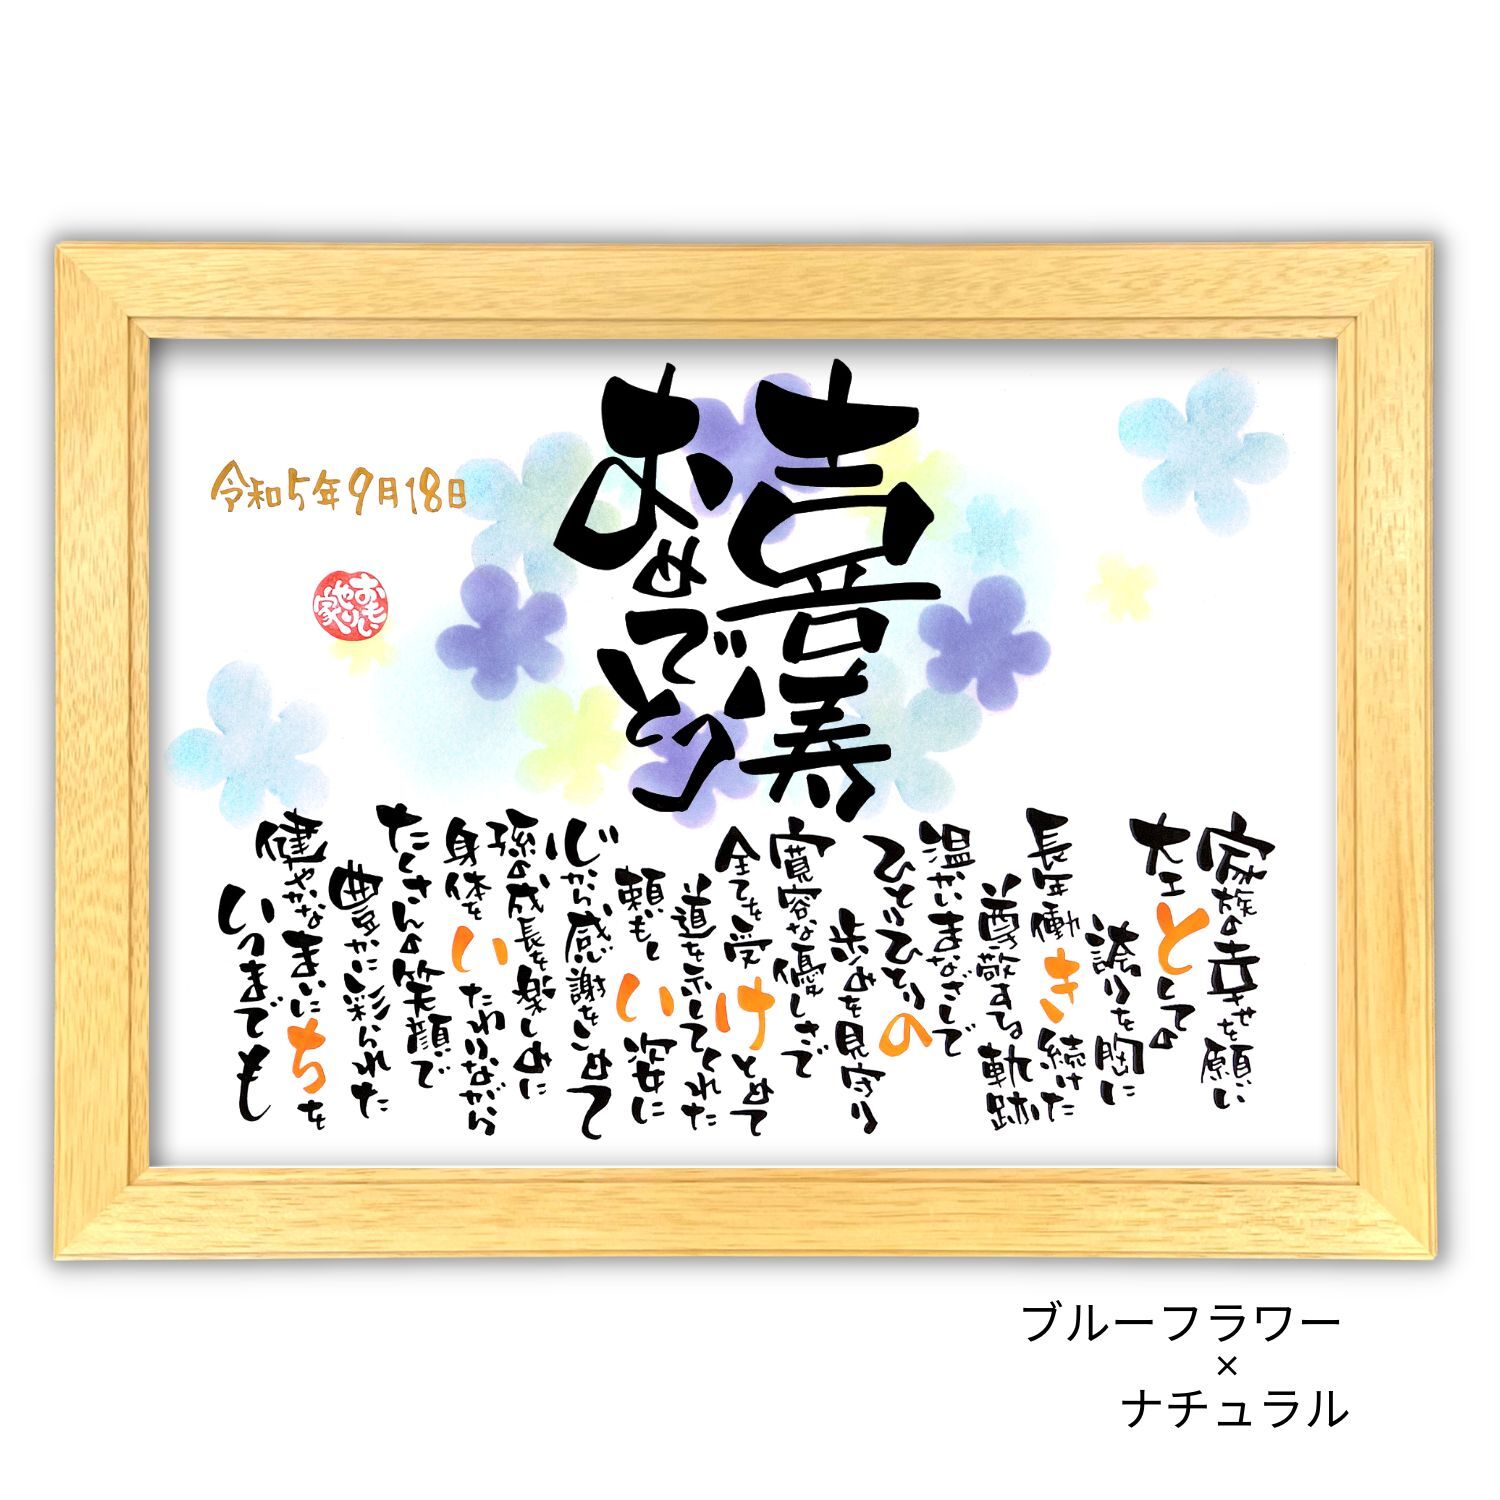 喜寿
おめでとう
令和5年9月18日
おもいやり家
家族の幸せを願い
大工としての
誇りを胸に
長年働き続けた
尊敬する軌跡
温かいまなざしで
ひとりひとりの
歩みを見守り
寛容な優しさで
全てを受けとめて
道を示してくれた
頼もしい姿に
心から感謝をこめて
孫の成長を楽しみに
身体をいたわりながら
たくさんの笑顔で
豊かに彩られた
健やかなまいにちを
いつまでも
ブルーフラワー
×
ナチュラル